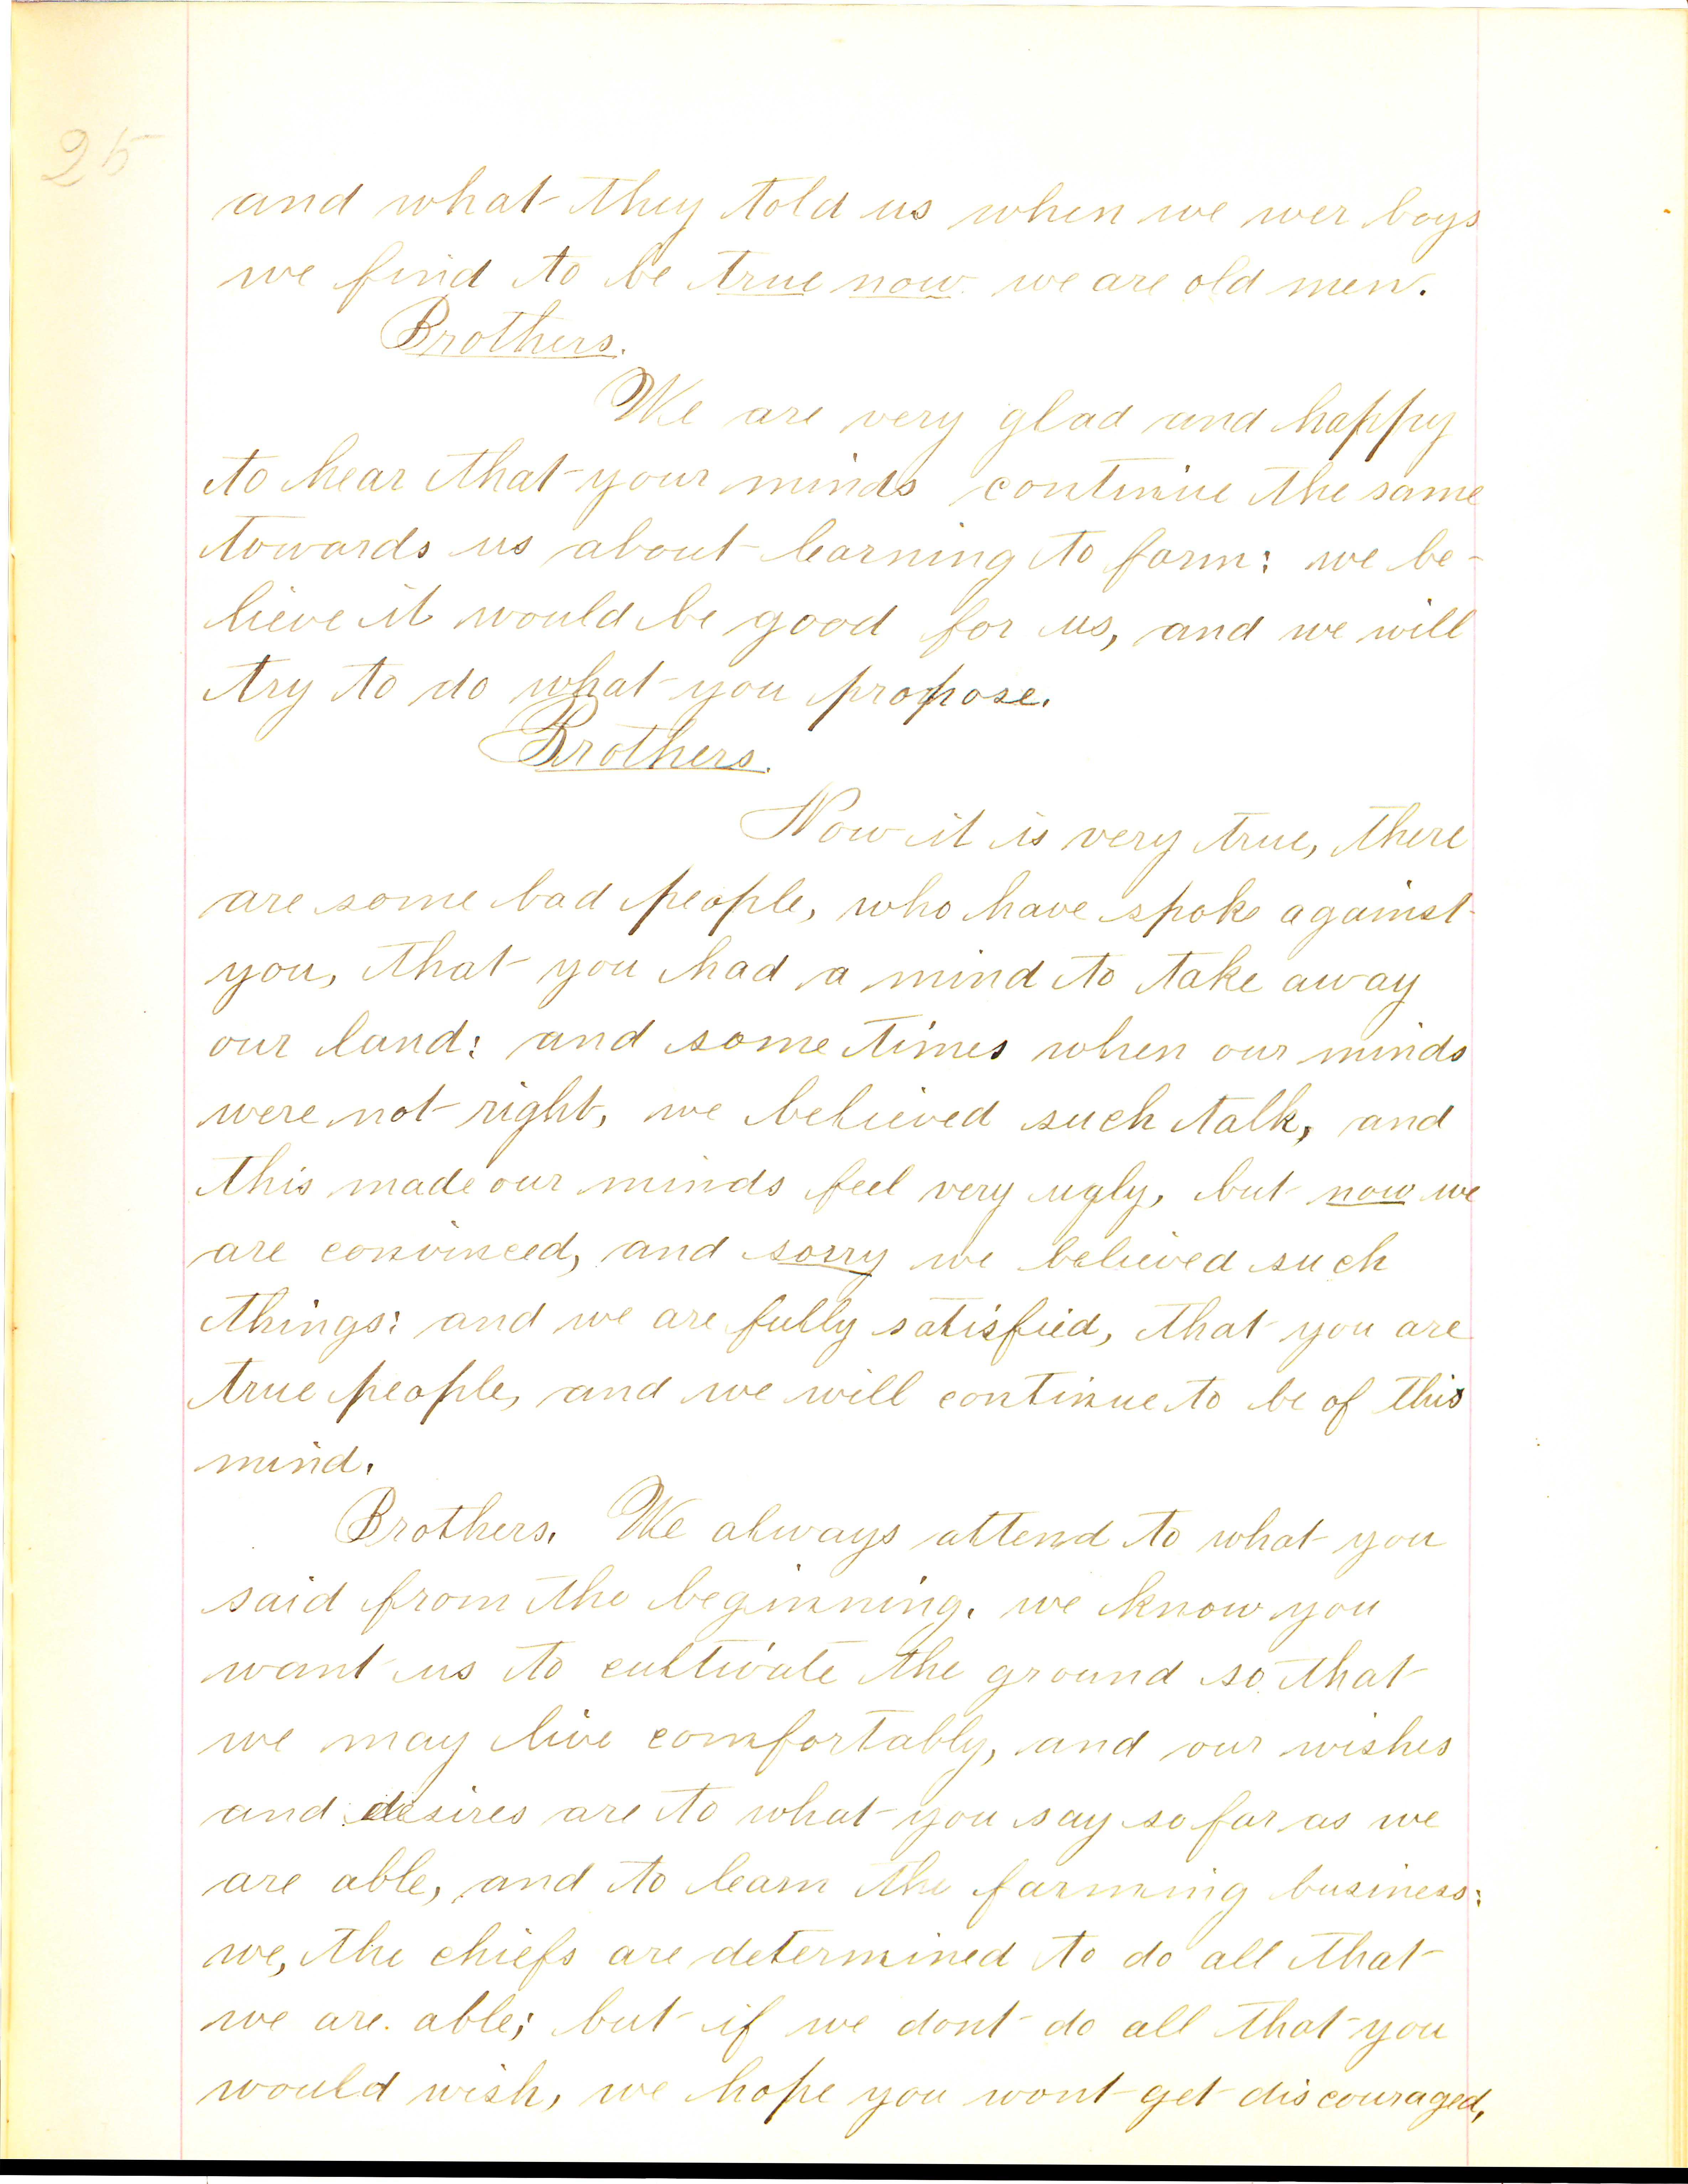 25
and what they told us when we wer boys
we find to be true now we are old men.
Brothers.
We are very glad and happy
to hear that your minds continue the same
towards us about learning to farm: we be-
lieve it would be good for us, and we will
try to do what you propose.
Brothers.
Now it is very true, there
are some bad people, who have spoke against
you, that you had a mind to take away
our land: and some times when our minds
were not right, we believed such talk, and
this made our minds feel very ugly, but now we
are convinced, and sorry we believed such
things: and we are fully satisfied, that you are
true people, and we will continue to be of this
mind.
Brothers. We always attend to what you
said from the beginning. we know you
want us to cultivate the ground so that
we may live comfortably, and our wishes
and desires are to what you say so far as we
are able, and to learn the farming business:
we, the chiefs are determined to do all that
we are able; but if we dont do all that you
would wish, we hope you wont get discouraged,